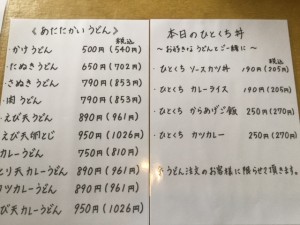 《あたたかいうどん》
税込
・かけうどん 500円(540円)
・たぬきうどん 650(702円)
・きぬうどん 790(853円)
・肉うどん 790(853円)
・えび天うどん 890(961円)
・えび天 とじ 950(1026円)
カレーうどん 750(810円)
とり天カレーうどん 890円(961円)
カツカレーうどん 890(961円)
び天カレーうどん 950円(1026円)
本日のひとくち丼
〜お好きなうどんとご一緒に〜
税込
・ひとくち ソースカツ丼 190円(205円)
・ひとくち カレーライス 190円(205円)
・ひとくち からあげご飯 250(270円)
・ひとくち カツカレー 250(270円)
※うどん注文のお客様に限らせて頂きます。